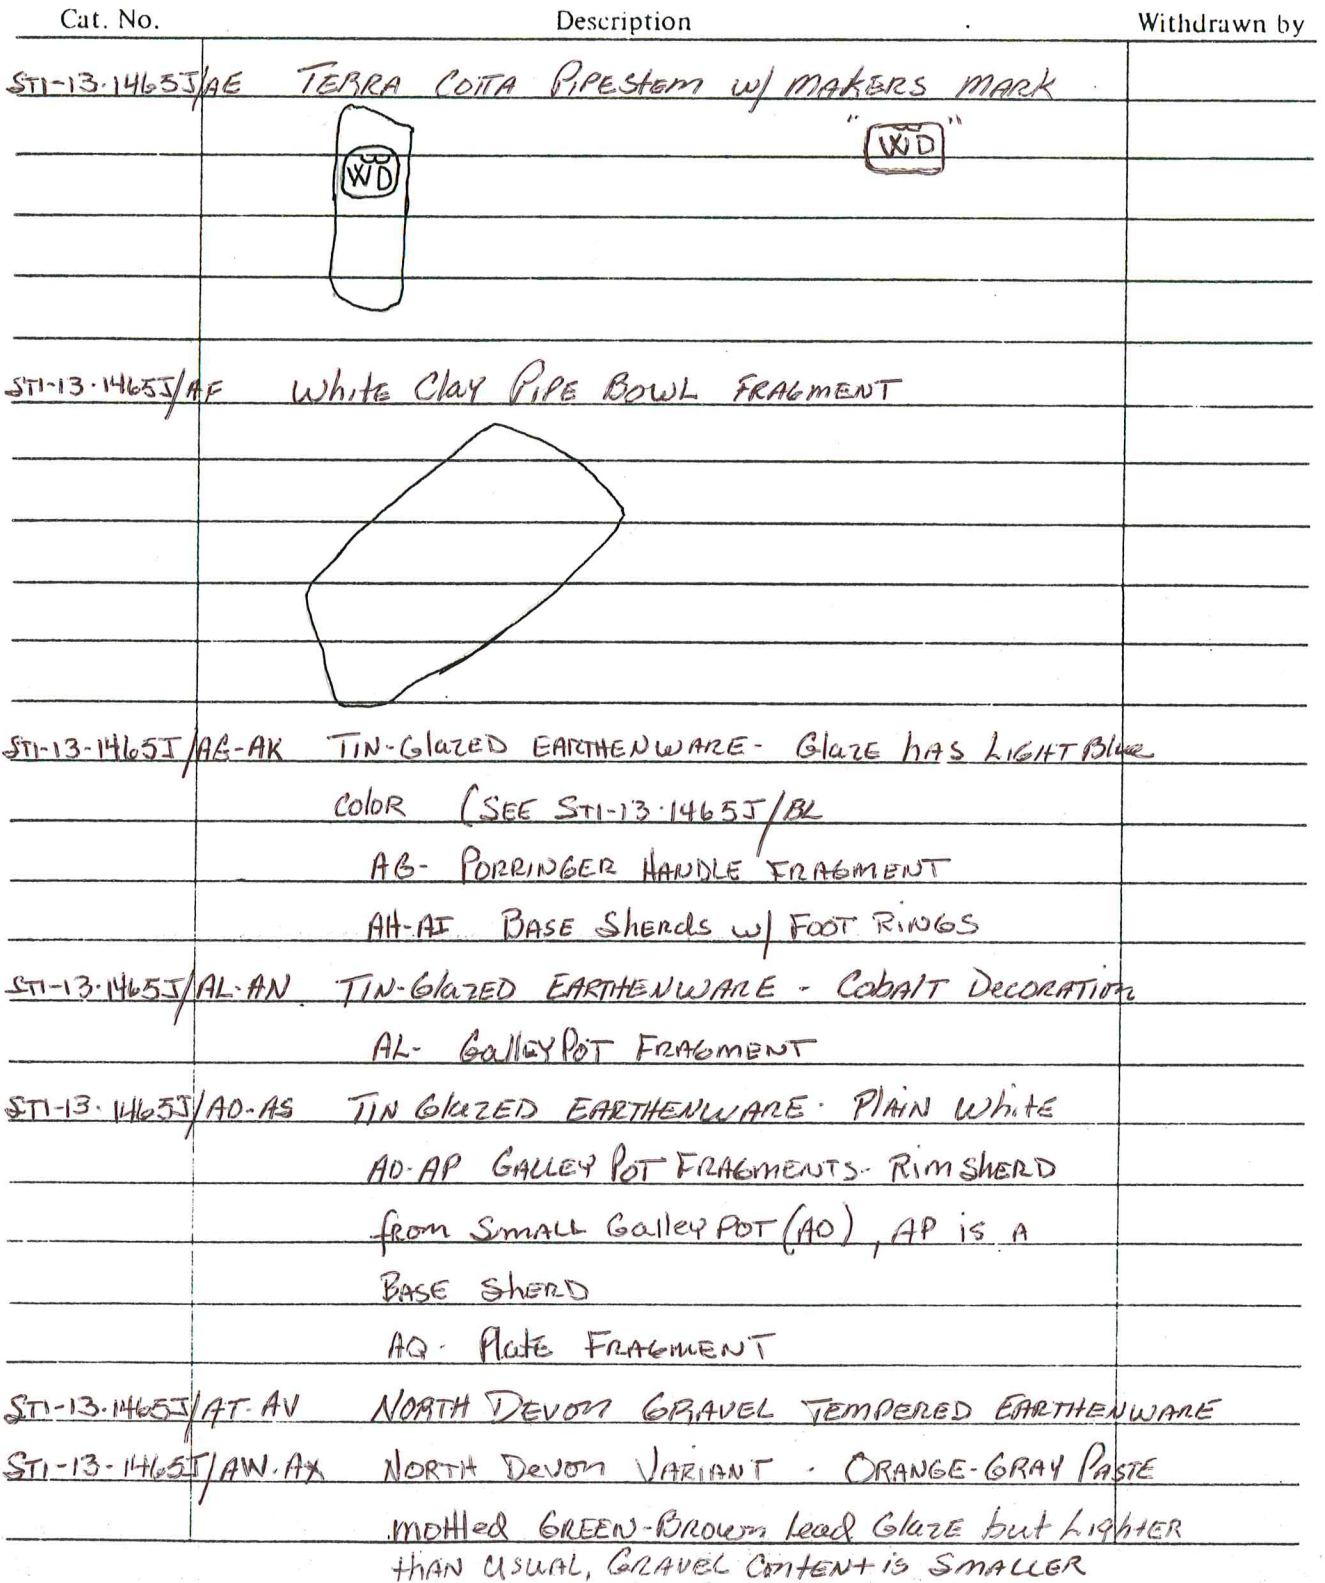 Cat. No. Description Withdrawn by
ST1-13-1465J/AE TERRA COTTA PIPESTEM W/ MAKERS MARK
" WD "
WD
ST1-13-1465J/AF White Clay PIPE BOWL FRAGMENT
ST1-13-1465J/AG-AK TIN-GlaZED EARTHENWARE- Glaze hAS LIGHT Blue
ColoR (SEE ST1-13-1465J/BL
AG- PORRINGER HANDLE FRAGMENT
AH-AI BASE Sherds w/ FOOT RINGS
ST1-13-1465J/AL-AN TIN-GlaZED EARTHENWARE - CobAlT DecORATION
AL- GallEY POT FRAGMENT
ST1-13-1465J/AO-AS TIN GlaZED EARTHENWARE- PlAIN WhitE
AO-AP GALLEY POT FRAGMENTS- RIM SHERD
from SMALL Galley POT (AO), AP is A
BASE SHERD
AQ- PlatE FRAGMENT
ST1-13-1465J/AT-AV NORTH DEVON GRAVEL TEMPERED EARTHENWARE
ST1-13-1465J/AW-AX NORTH DEVON VARIANT - ORANGE-GRAY PASTE
mottled GREEN-BROWN lead GlaZE but LighTER
thAN USUAL, GRAVEL CONTENT is SMALLER